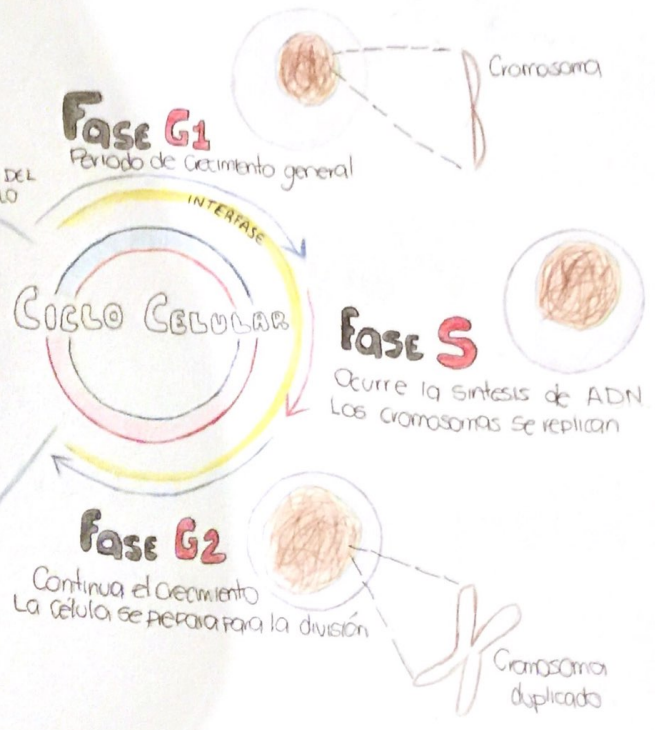 Cromosoma
Fase G1
Periodo de Crecimento general
DEL
LO
INTERFASE
CICLO CELULAR
Fase S
Ocurre la sintesis de ADN
Los cromosomas se replican
Fase G2
Continua el crecimiento
La célula se prepara para la división
Cromosoma
duplicado